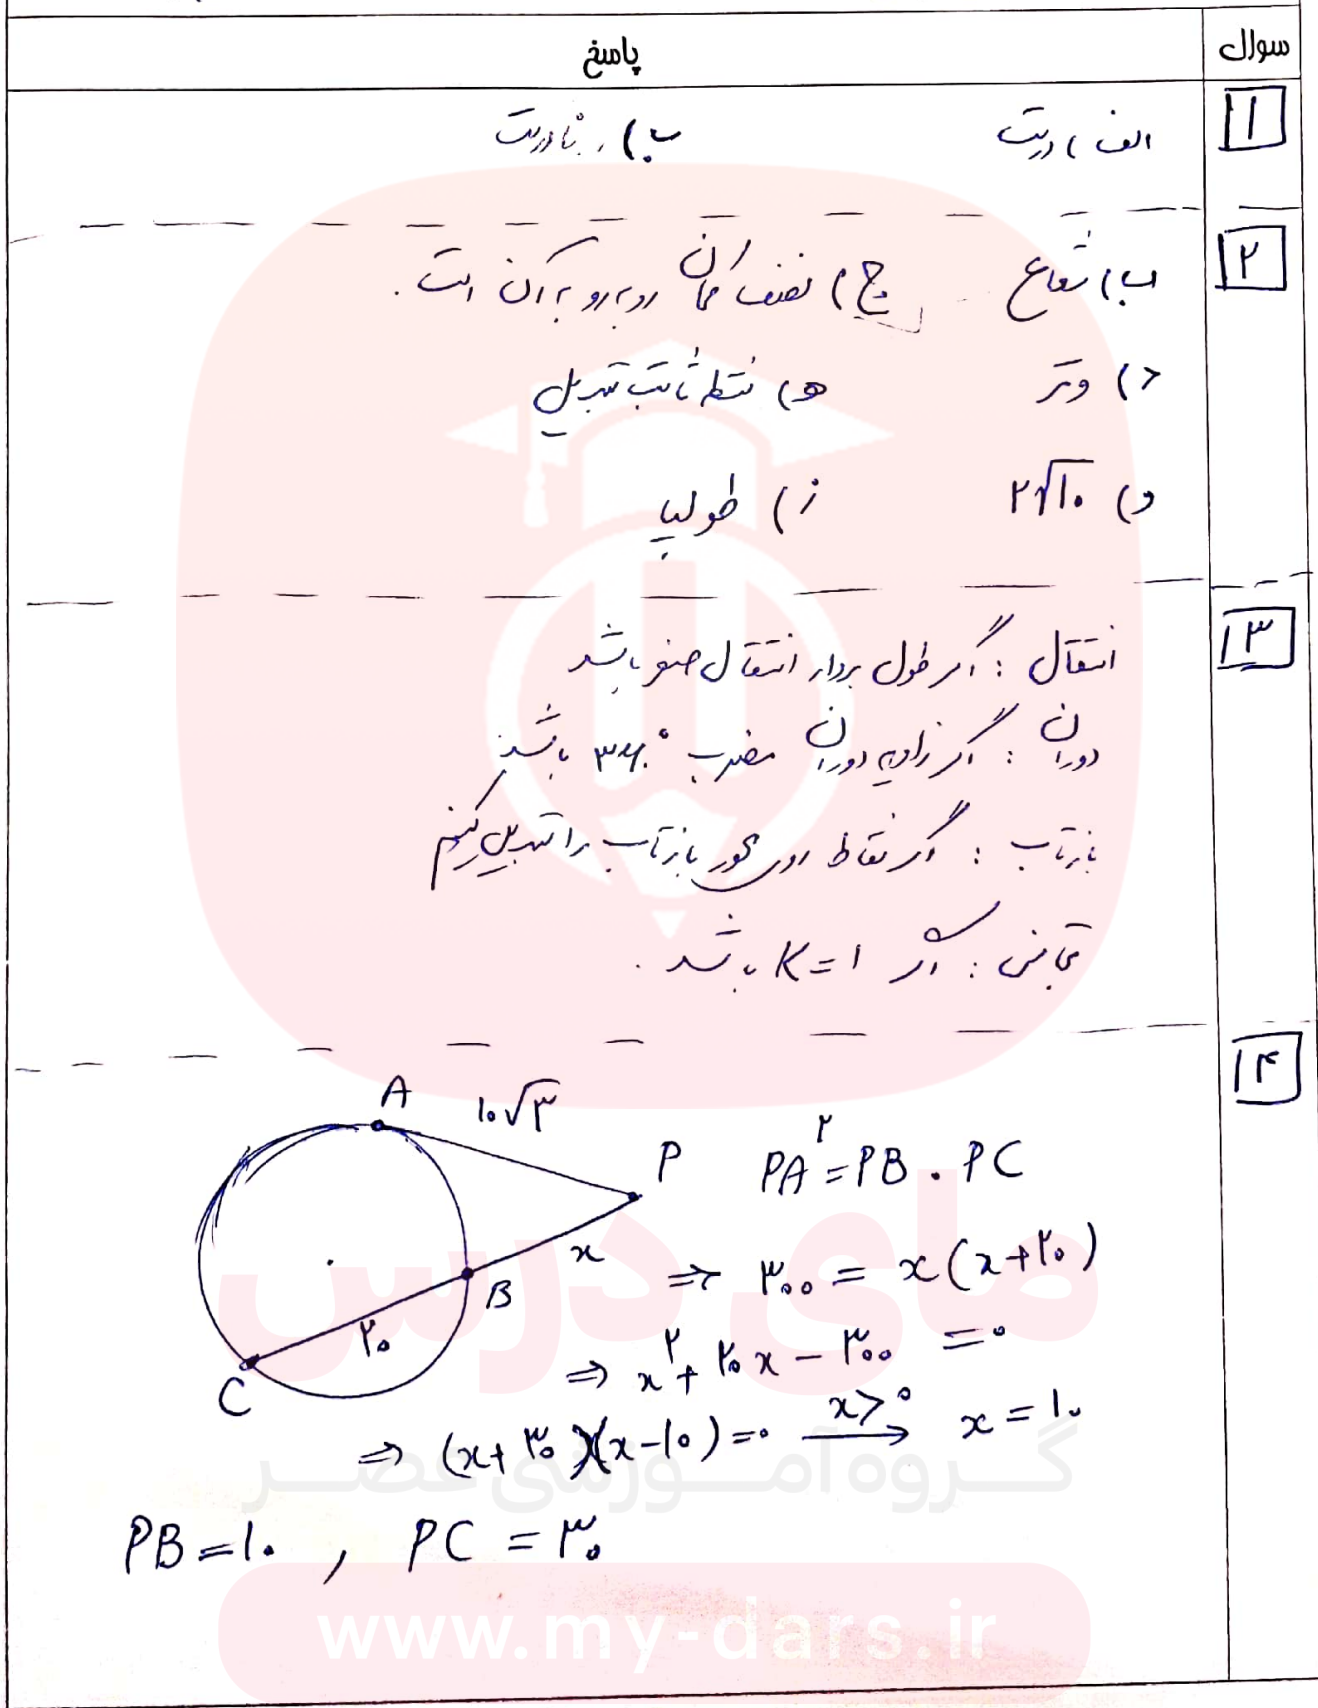 سوال
پاسخ
۱
الف) درست ب) نادرست
۲
ب) شعاع ج) نصف کمان روبه‌رو به آن است.
د) وتر ه) نقطه ثابت تبدیل
و) ۲√۱۰ ز) طولپا
۳
انتقال : اگر طول بردار انتقال صفر باشد
دوران : اگر زاویه دوران مضرب ۳۶۰° باشد
بازتاب : اگر نقاط روی محور بازتاب را تبدیل کنیم
تجانس : اگر K=۱ باشد.
۴
A
۱۰√۳
P
x
B
۲۰
C
PA^۲ = PB . PC
⇒ ۳۰۰ = x(x+۲۰)
⇒ x^۲ + ۲۰x − ۳۰۰ = ۰
⇒ (x+۳۰)(x−۱۰)=۰ x>۰ → x=۱۰
PB=۱۰ , PC=۳۰
مای درس
گروه آموزشی عصر
www.my-dars.ir